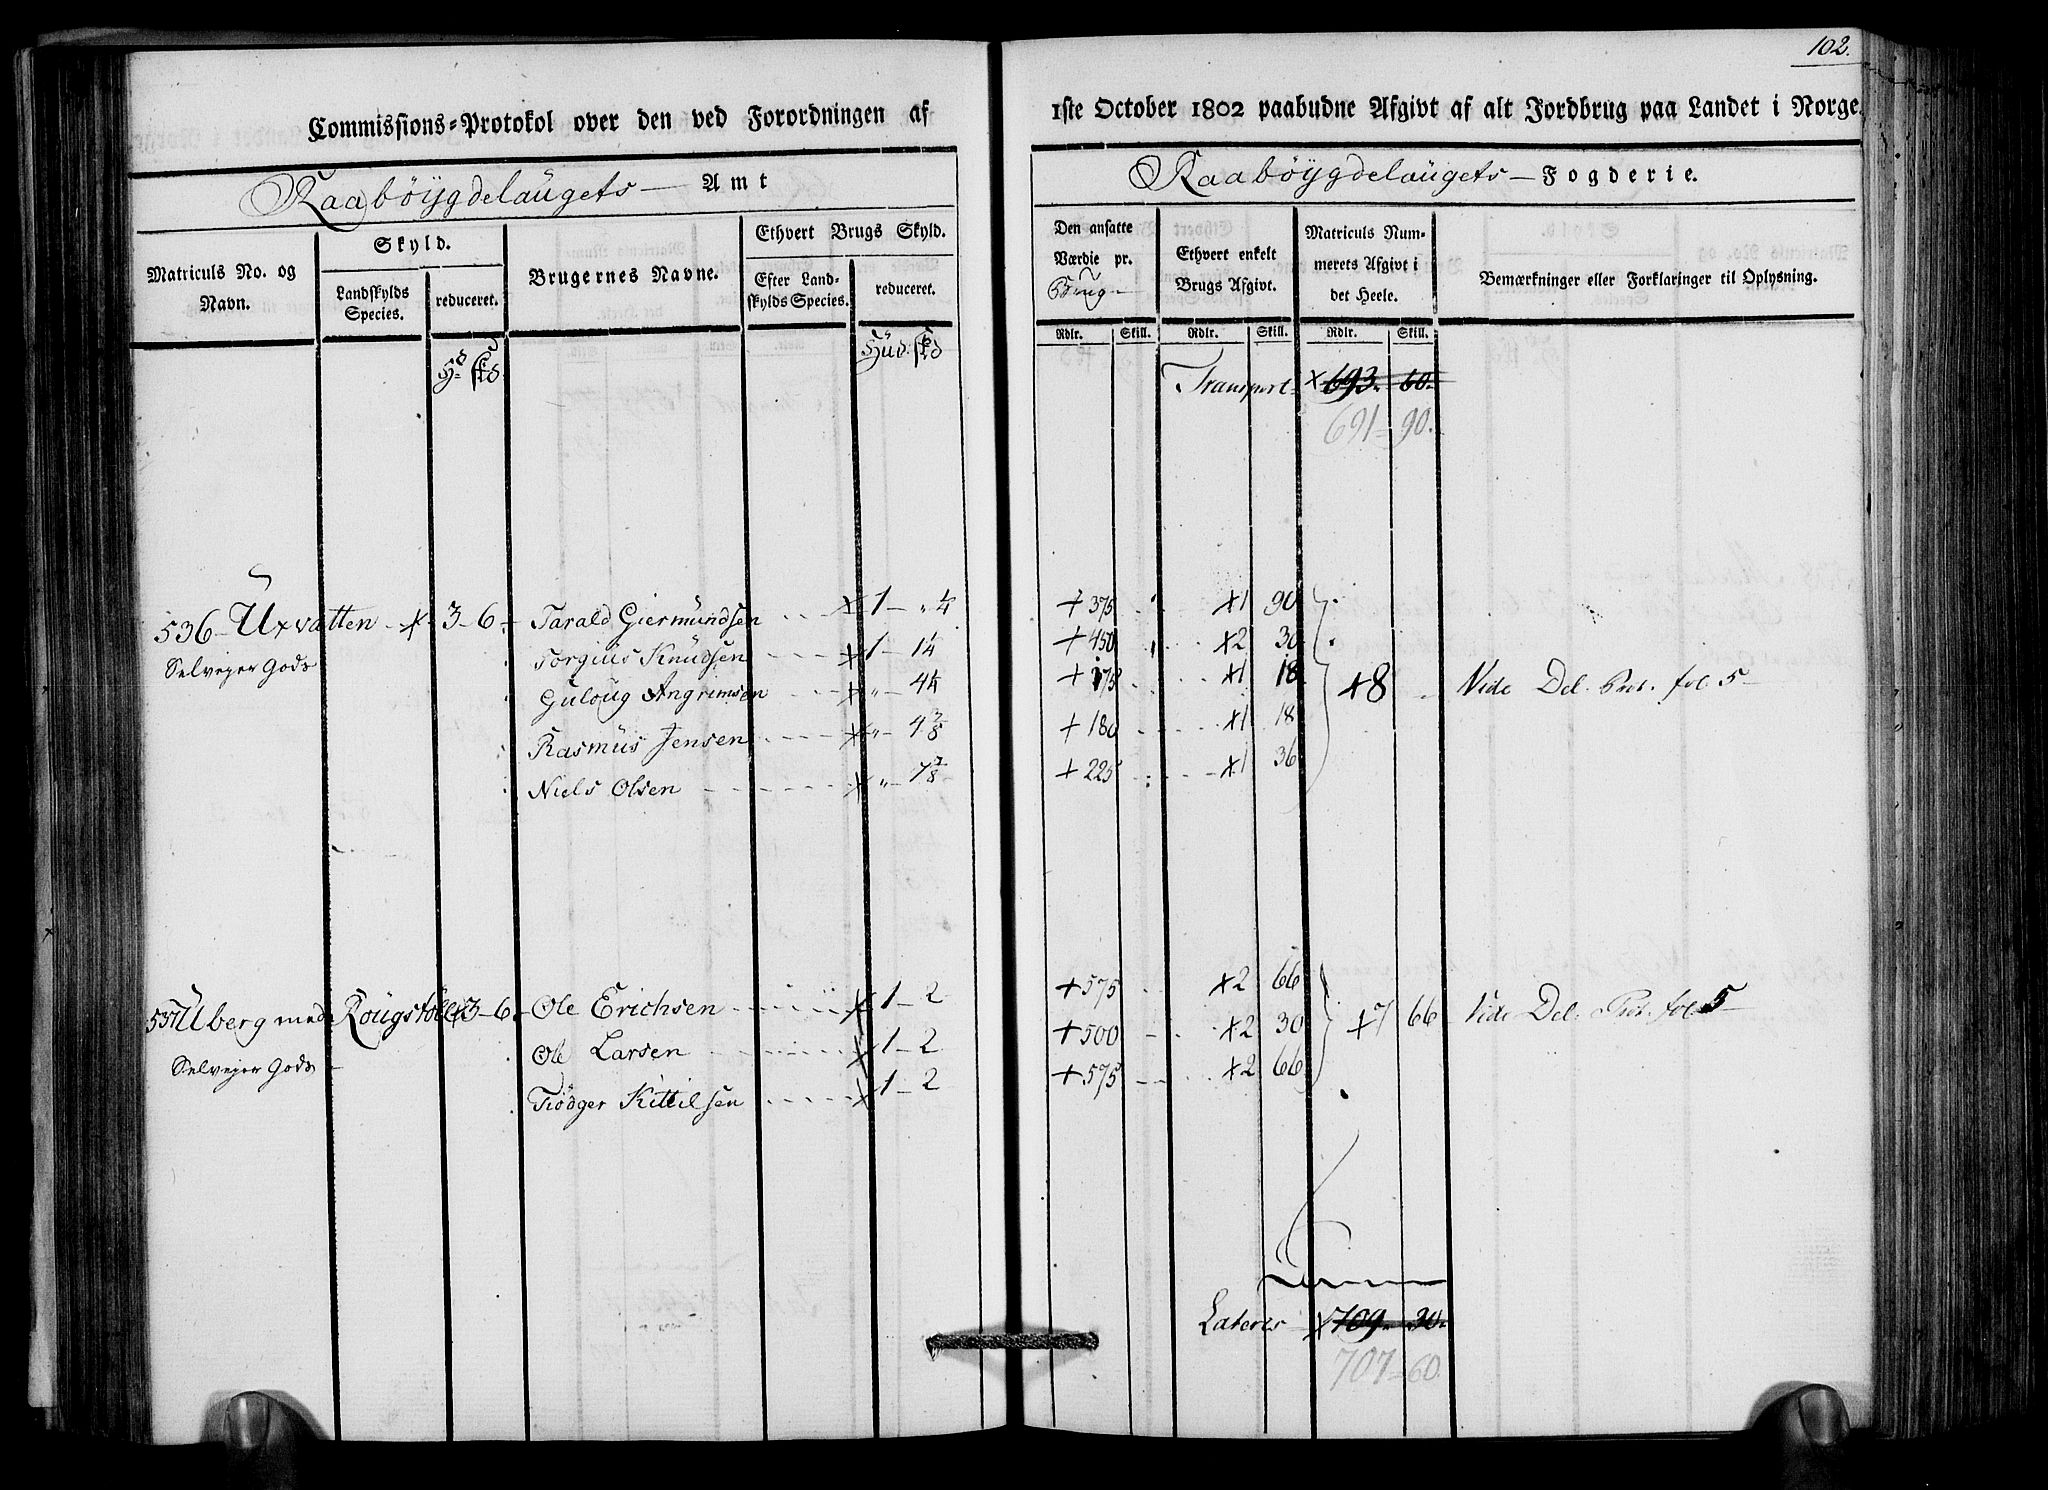 102.
Commissions-Protokol over den ved Forordningen af 1ste October 1802 paabudne Afgivt af alt Jordbrug paa Landet i Norge.
Raabøÿgdelaugets — Amt
Raabøÿgdelaugets — Fogderie.
Matriculs No. og Navn.
Skyld.
Landskylds Species.
reduceret.
Brugernes Navne.
Ethvert Brugs Skyld.
Efter Landskylds Species.
reduceret.
Den ansatte Værdie pr. Brug
Ethvert enkelt Brugs Afgivt.
Matriculs Nummerets Afgivt i det Heele.
Bemærkninger eller Forklaringer til Oplysning.
Rdlr. Skill. Rdlr. Skill. Rdlr. Skill.
Hd skd
Hud. skd
Transport x 693. 60.
691 = 90.
536 - Uxvatten x 3 - 6 - Tarald Giermundsen x 1 - " 4 + 375 x1 90
Selvejer Gods Torgius Knudsen x 1 - 1 1/4 + 450 x2 30
Guloug Angrimsen x " - 4 1/4 + 175 x1 18 +8 Vide Del. Prot. fol. 5 -
Rasmus Jensen x " - 4 3/8 + 180 x1 18
Niels Olsen x " - 7 7/8 + 225 x1 36
537 Uberg med Rougstöll x 3 - 6 - Ole Erichsen x 1 - 2 + 575 x2 66
Selvejer Gods Ole Larsen x 1 - 2 + 500 x2 30 +7 66 Vide Del. Prot. fol. 5 -
Tiödger Kittilsen x 1 - 2 + 575 x2 66
Lateris x 709. 30.
707 = 60.